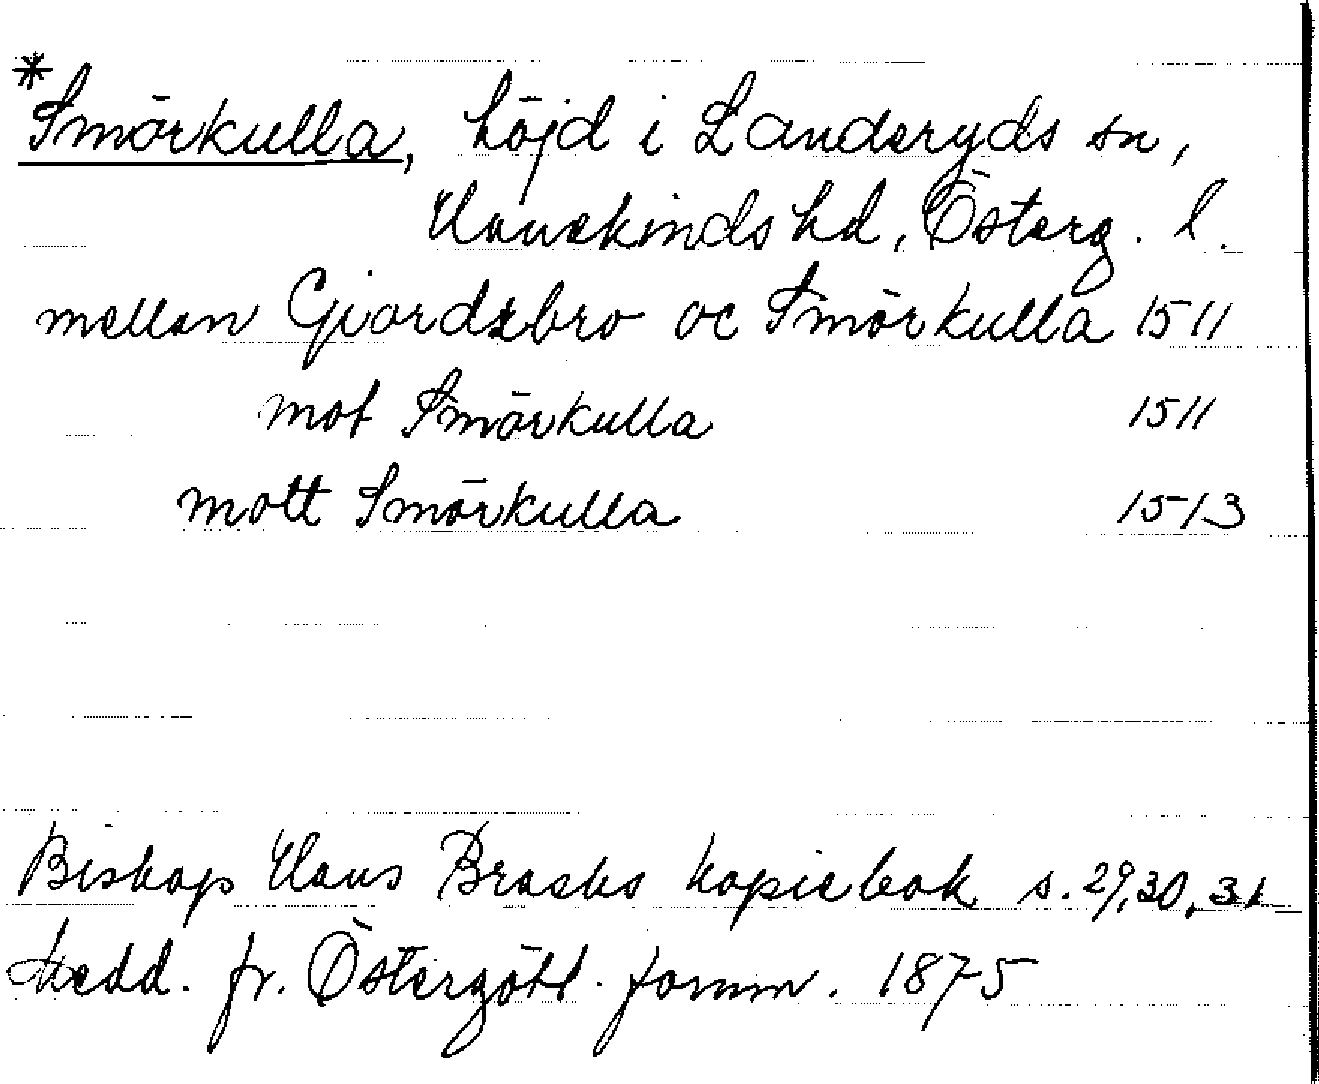 *Smörkulla, höjd i Landeryds sn,
Hanekinds hd, Österg. l.
mellan Giordzbro oc Smörkulla 1511
mot Smörkulla 1511
mott Smörkulla 1513
Biskop Hans Brasks kopiebok s. 29, 30, 31
Medd. fr. Östergötl. fornm. 1875